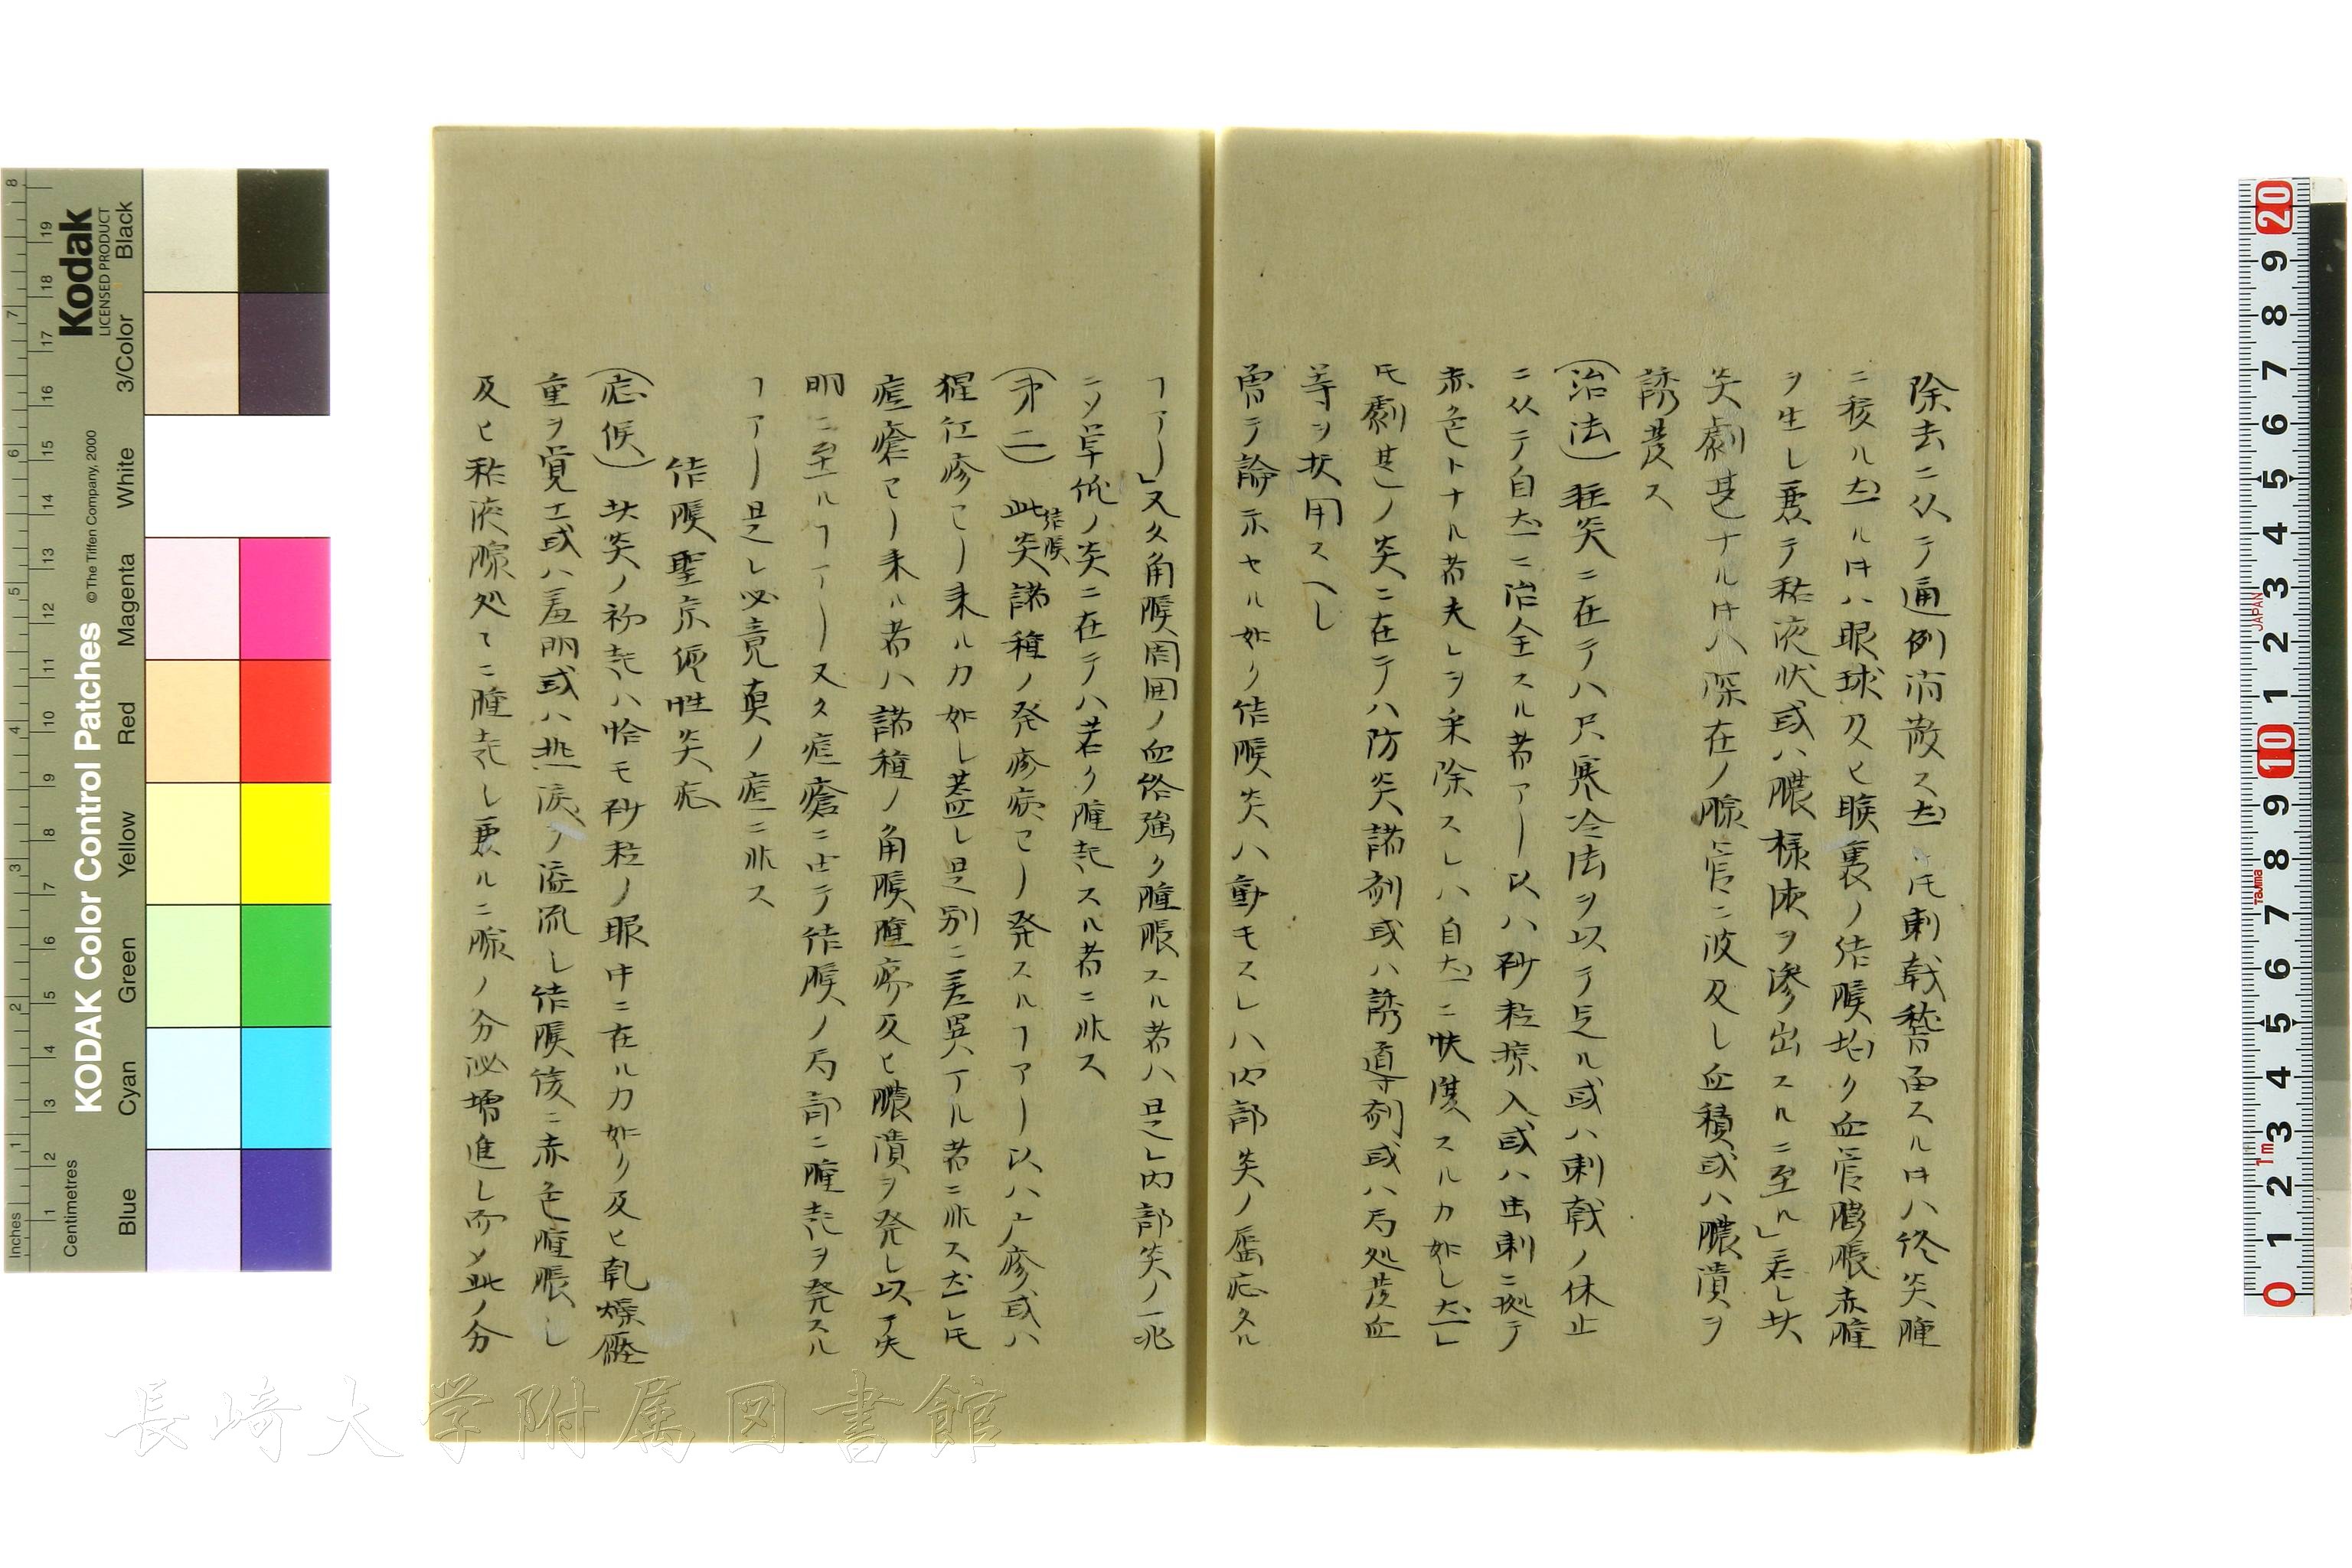 除去ニ仄テ通例消散ス𪜈刺戟稽留スル片ハ終炎腫
ニ移ル片ハ眼球及ヒ瞼裏ノ結膜均ク血管膨脹赤腫
ヲ生シ兼テ粘液状或ハ膿様液ヲ滲出スルニ至ル」若シ其
炎劇甚ナル片ハ深在ノ膜管ニ波及シ血積或ハ膿潰ヲ
誘発ス
(治法)軽炎ニ在テハ只寒冷法ヲ以テ足ル或ハ刺戟ノ休止
ニ仄テ自然ニ治全スル者アリ以ハ砂粒竄入或ハ虫刺ニ拠テ
赤色トナル者夫レヲ采除スレハ自然ニ快復スルカ如シ然レ
𪜈劇甚ノ炎ニ在テハ防炎諸剤或ハ誘導剤或ハ局処蜞血
等ヲ択用スヘシ
曽テ論示セル如ク結膜炎ハ動モスレハ内部炎ノ歴症タル
ヿアリ」又タ角膜周囲ノ血絡強ク腫脹スル者ハ是レ内部炎ノ一兆
ニソ単純ノ炎ニ在テハ若ク腫起スル者ニ非ス
(第二)此結膜炎諸種ノ発疹病ヨリ発スルヿアリ以ハ广疹或ハ
猩紅疹ヨリ来ルカ如シ蓋シ是別ニ差異アル者ニ非ス然レ𪜈
痘瘡ヨリ来ル者ハ諸種ノ角膜腫瘍及ヒ膿潰ヲ発シ以テ失
明ニ至ルヿアリ又タ痘瘡ニ由テ結膜ノ局部ニ腫起ヲ発スル
ヿアリ是レ必竟真ノ痘ニ非ス
結膜聖京偲性炎症
(症候)其炎ノ初起ハ恰モ砂粒ノ眼中ニ在ルカ如ク及ヒ乾燥壓
重ヲ覚エ或ハ羞明或ハ热涙ヲ溢流シ結膜後ニ赤色腫脹シ
及ヒ粘液腺処々ニ腫起シ兼ルニ腺ノ分泌増進シ而メ此ノ分
Kodak
LICENSED PRODUCT
KODAK Color Control Patches
© The Tiffen Company, 2000
Inches
Centimetres
Black
3/Color
White
Magenta
Red
Yellow
Green
Cyan
Blue
JAPAN
Tajima
1m
長崎大学附属図書館